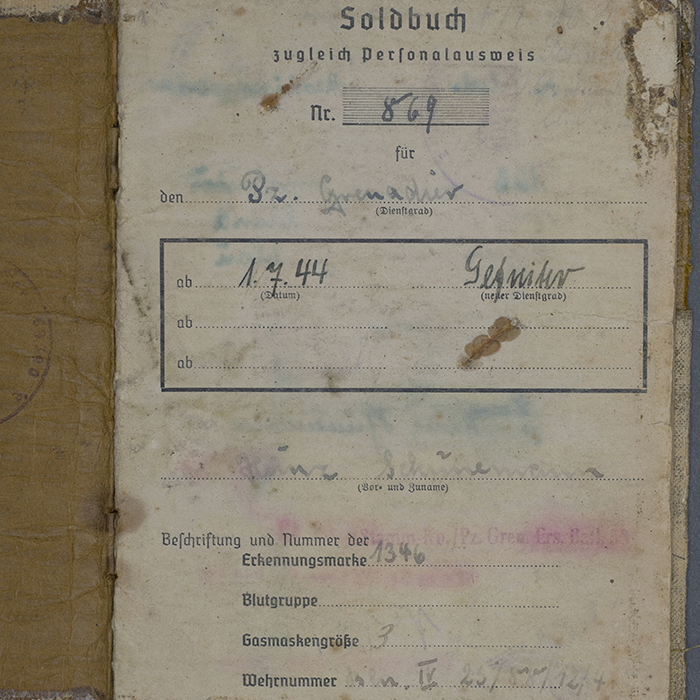 Soldbuch
zugleich Personalausweis
Nr. 869
für
den Pz. Grenadier
(Dienstgrad)
ab 1.7.44 Gefreiter
(Datum) (neuer Dienstgrad)
ab
ab
Heinz Schünemann
(Vor- und Zuname)
Beschriftung und Nummer der Stamm-Kp./Pz. Gren. Ers. Batl.
Erkennungsmarke 1346
Blutgruppe
Gasmaskengröße 3
Wehrnummer